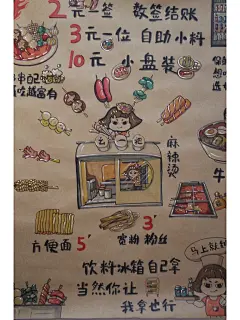 2元一签 数签结账
3元一位 自助小料
10元 小盘装
串自己
吃越富有
麻辣烫
牛
方便面 5
宽粉 粉丝 3
马上就好
饮料冰箱自己拿
当然你让
我拿也行